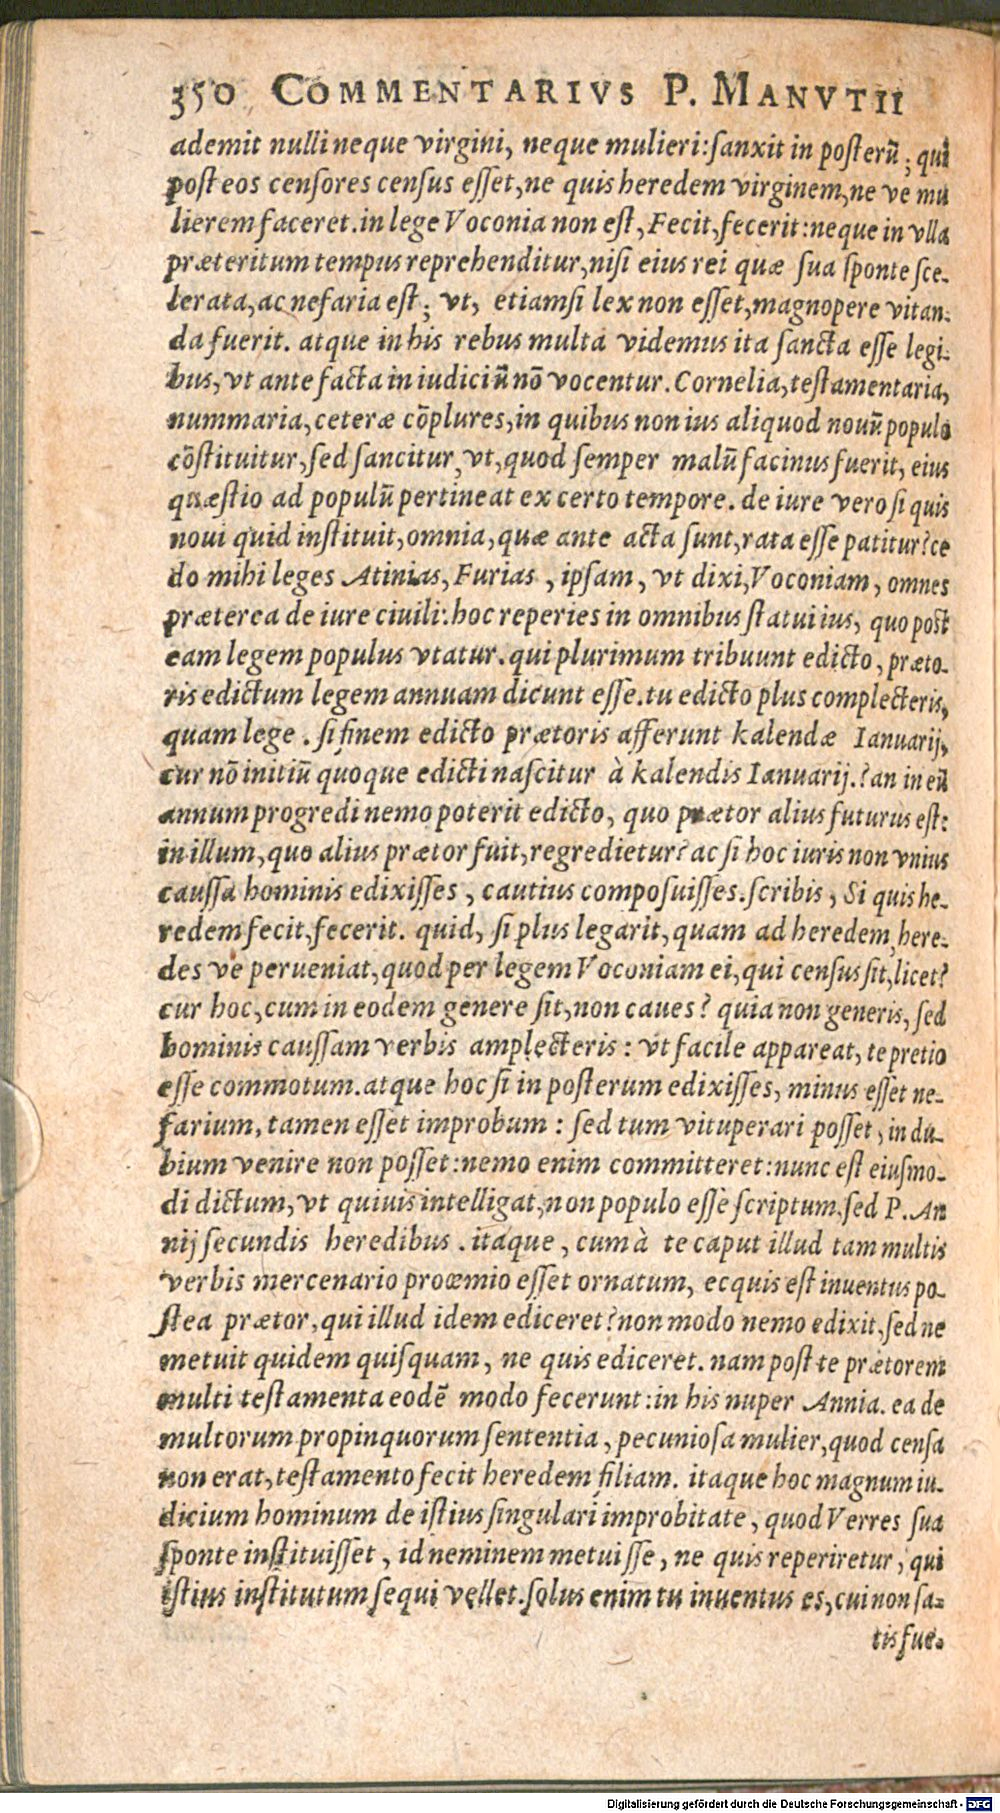 350 COMMENTARIVS P. MANVTII
ademit nulli neque virgini, neque mulieri: ſanxit in poſterū, qui
poſt eos cenſores cenſus eſſet, ne quis heredem virginem, ne ve mu
lierem faceret. in lege Voconia non eſt, Fecit, fecerit: neque in vlla
præteritum tempus reprehenditur, niſi eius rei quæ ſua ſponte ſce-
lerata, ac nefaria eſt; vt, etiamſi lex non eſſet, magnopere vitan-
da fuerit. atque in his rebus multa videmus ita ſancta eſſe legi-
bus, vt ante facta in iudiciū nō vocentur. Cornelia, teſtamentaria,
nummaria, ceteræ cōplures, in quibus non ius aliquod nouū populo
cōſtituitur, ſed ſancitur, vt, quod ſemper malū facinus fuerit, eius
quæſtio ad populū pertineat ex certo tempore. de iure vero ſi quis
noui quid inſtituit, omnia, quæ ante acta ſunt, rata eſſe patitur? ce
do mihi leges Atinias, Furias, ipſam, vt dixi, Voconiam, omnes
præterea de iure ciuili: hoc reperies in omnibus ſtatui ius, quo poſt
eam legem populus vtatur. qui plurimum tribuunt edicto, præto-
ris edictum legem annuam dicunt eſſe. tu edicto plus complecteris,
quam lege. ſi finem edicto prætoris afferunt kalendæ Ianuarij,
cur nō initiū quoque edicti naſcitur à kalendis Ianuarij.? an in eū
annum progredi nemo poterit edicto, quo prætor alius futurus eſt:
in illum, quo alius prætor fuit, regredietur? ac ſi hoc iuris non vnius
cauſſa hominis edixiſſes, cautius compoſuiſſes. ſcribis, Si quis he-
redem fecit, fecerit. quid, ſi plus legarit, quam ad heredem, here-
des ve perueniat, quod per legem Voconiam ei, qui cenſus ſit, licet?
cur hoc, cum in eodem genere ſit, non caues? quia non generis, ſed
hominis cauſſam verbis amplecteris: vt facile appareat, te pretio
eſſe commotum. atque hoc ſi in poſterum edixiſſes, minus eſſet ne-
farium, tamen eſſet improbum: ſed tum vituperari poſſet, in du-
bium venire non poſſet: nemo enim committeret: nunc eſt eiuſmo-
di dictum, vt quiuis intelligat, non populo eſſe ſcriptum, ſed P. An
nij ſecundis heredibus. itaque, cum à te caput illud tam multis
verbis mercenario proœmio eſſet ornatum, ecquis eſt inuentus po-
ſtea prætor, qui illud idem ediceret? non modo nemo edixit, ſed ne
metuit quidem quiſquam, ne quis ediceret. nam poſt te prætorem
multi teſtamenta eodē modo fecerunt: in his nuper Annia. ea de
multorum propinquorum ſententia, pecunioſa mulier, quod cenſa
non erat, teſtamento fecit heredem filiam. itaque hoc magnum iu-
dicium hominum de iſtius ſingulari improbitate, quod Verres ſua
ſponte inſtituiſſet, id neminem metuiſſe, ne quis reperiretur, qui
iſtius inſtitutum ſequi vellet. ſolus enim tu inuentus es, cui non ſa-
tis fue-
Digitalisierung gefördert durch die Deutsche Forschungsgemeinschaft - DFG